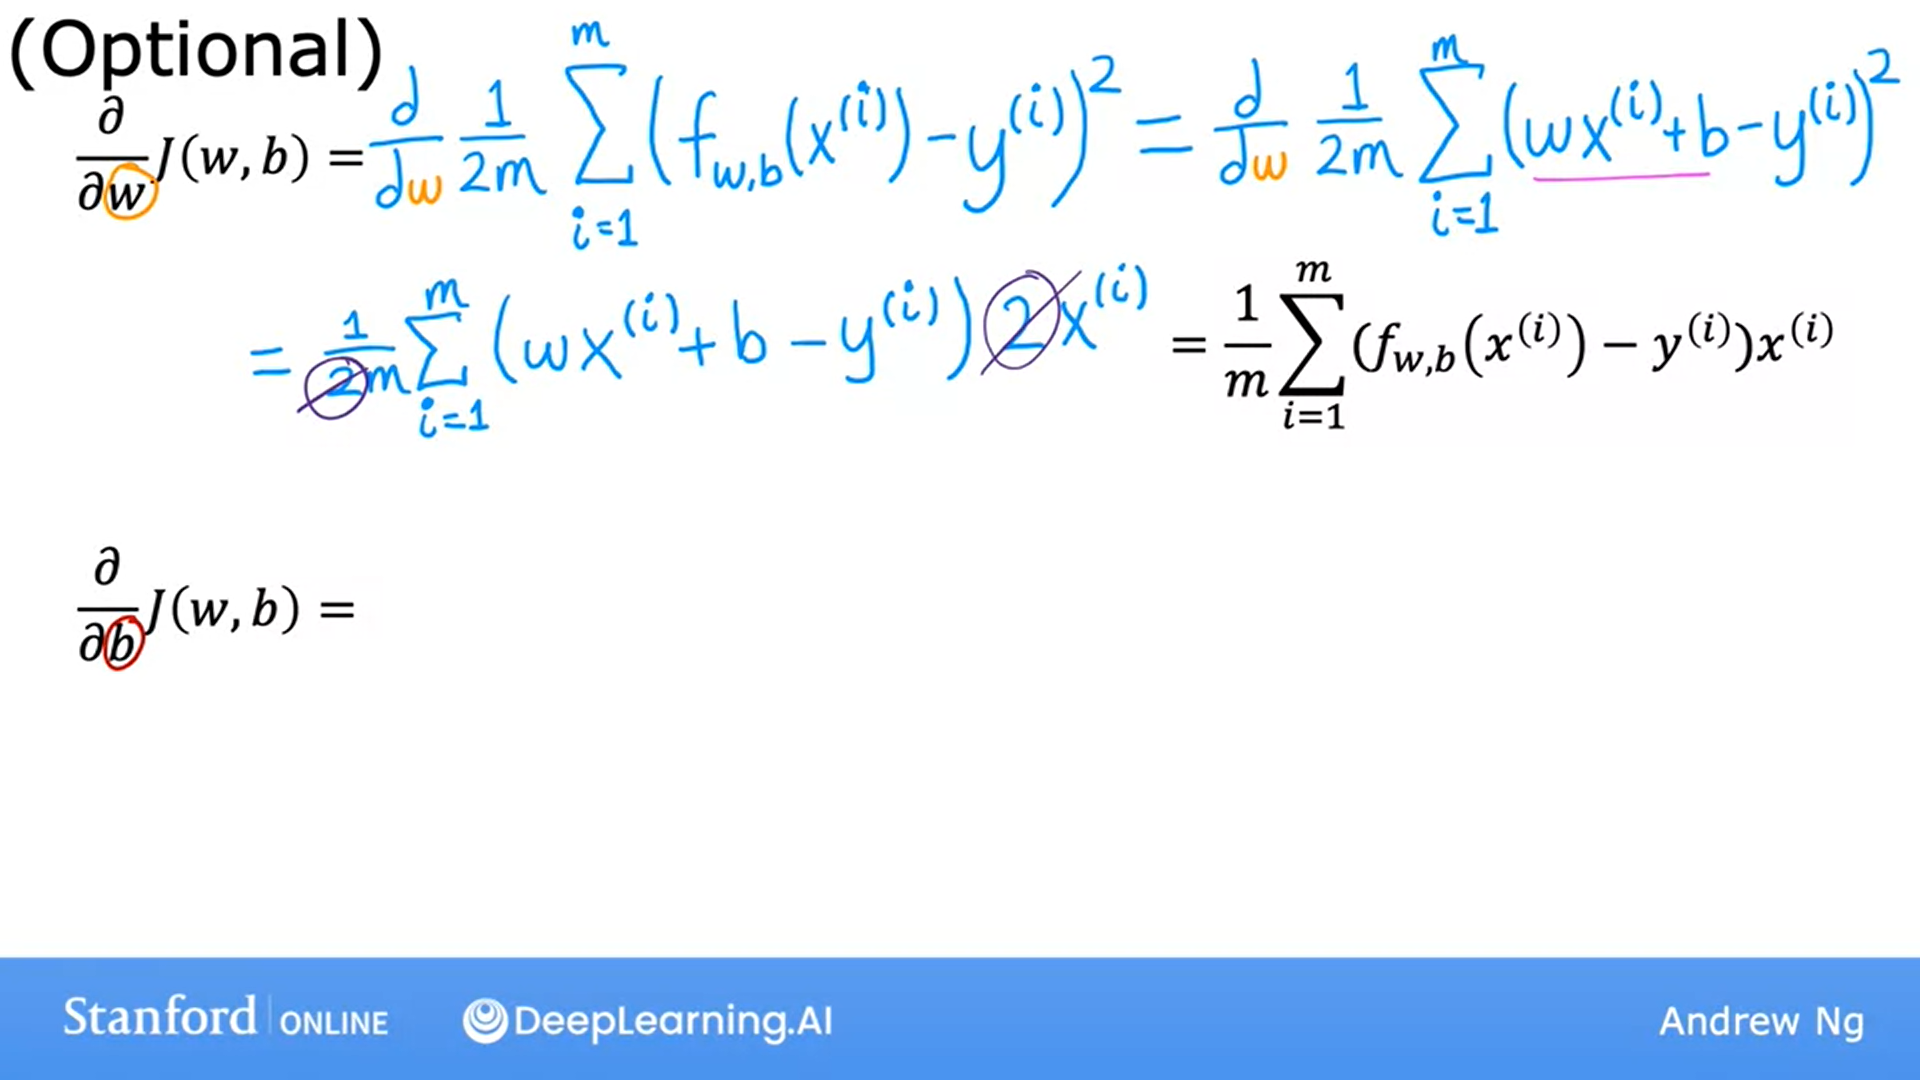 (Optional)
∂/∂w J(w, b) = d/dw 1/2m ∑_{i=1}^{m} (f_{w,b}(x^{(i)}) − y^{(i)})^2 = d/dw 1/2m ∑_{i=1}^{m} (wx^{(i)} + b − y^{(i)})^2
= 1/2m ∑_{i=1}^{m} (wx^{(i)} + b − y^{(i)}) 2x^{(i)} = 1/m ∑_{i=1}^{m} (f_{w,b}(x^{(i)}) − y^{(i)})x^{(i)}
∂/∂b J(w, b) =
Stanford ONLINE DeepLearning.AI Andrew Ng